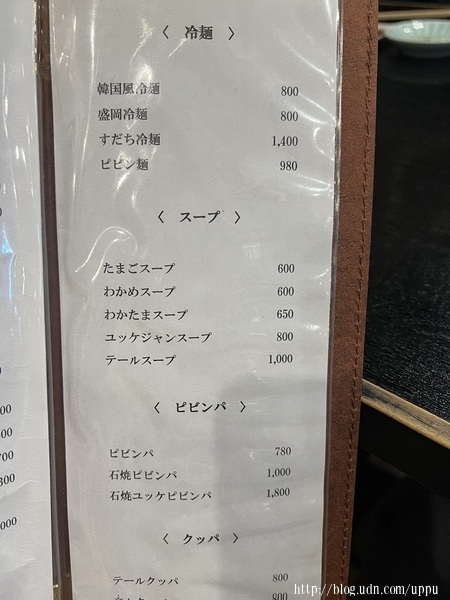 〈 冷麺 〉
韓国風冷麺 800
盛岡冷麺 800
すだち冷麺 1,400
ピビン麺 980
〈 スープ 〉
たまごスープ 600
わかめスープ 600
わかたまスープ 650
ユッケジャンスープ 800
テールスープ 1,000
〈 ピビンパ 〉
ピビンパ 780
石焼ピビンパ 1,000
石焼ユッケピビンパ 1,800
〈 クッパ 〉
テールクッパ 800
800
http://blog.udn.com/uppu